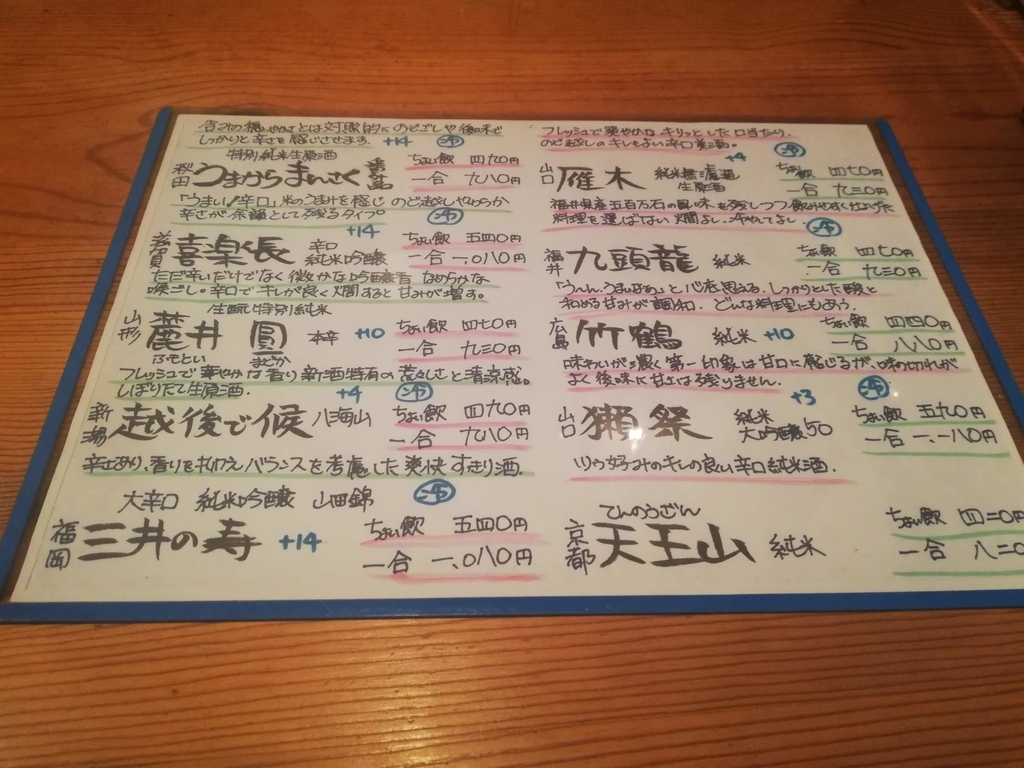 含みの穏やかさとは対照的にのどごしや後味で
しっかりと辛さを感じさせます。 +14 冷
特別純米生原酒
秋田 うまからまんさく 番萬 ちょい飲 四九〇円
一合 九八〇円
「うまい!辛口」米のうまみを感じ のど越しやわらか
辛さが余韻として残るタイプ。 冷
+14
滋賀 喜楽長 辛口 純米吟醸 ちょい飲 五四〇円
一合 一、〇八〇円
ただ辛いだけでなく微かな吟醸香 なめらかな
喉ごし。辛口でキレが良く燗すると甘みが増す。
生酛特別純米
山形 麓井 圓 本辛 +10 ちょい飲 四七〇円
ふもとい まどか 一合 九三〇円
フレッシュで華やかな香り 新酒特有の荒々しさと清涼感。
しぼりたて生原酒。 +4 冷
新潟 越後で候 八海山 ちょい飲 四九〇円
一合 九八〇円
辛さあり、香りを抑えバランスを考慮した爽快すっきり酒。
大辛口 純米吟醸 山田錦 冷
福岡 三井の寿 +14 ちょい飲 五四〇円
一合 一、〇八〇円
フレッシュで爽やかなキリッとした口当たり。
のど越しのキレもよい辛口 +4 冷
山口 雁木 純米無濾過 生原酒 ちょい飲 四七〇円
一合 九三〇円
福井県産五百万石の風味を残しつつ飲みやすく仕上げた
料理を選ばない燗よし、冷やしてよし 冷
福井 九頭龍 純米 ちょい飲 四七〇円
一合 九三〇円
「う〜ん、うまいなぁ」と心底思える、しっかりとした酸と
和める甘みが調和、どんな料理にもあう。
広島 竹鶴 純米 +10 ちょい飲 四四〇円
一合 八八〇円
味わいが濃く第一印象は甘口に感じるが、味の切れが
よく後味に甘さは残りません。 冷
+3
山口 獺祭 純米 大吟醸50 ちょい飲 五九〇円
一合 一、一八〇円
ツウ好みのキレの良い辛口純米酒。
てんのうざん
京都 天王山 純米 ちょい飲 四二〇円
一合 八二〇